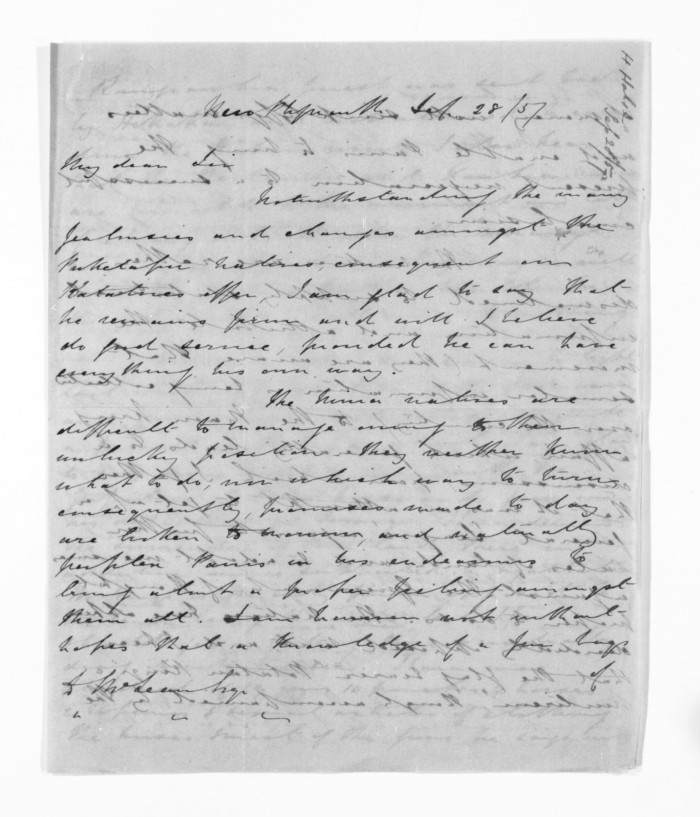 H Halse
Sep 28/57
New Plymouth Sep 28/57
My dear Sir
Notwithstanding the many
jealousies and changes amongst the
Puketapu natives, consequent on
Katatore's offer, I am glad to say that
he remains firm and will I believe
do good service, provided he can have
everything his own way.
The natives are
difficult to manage owing to their
unlucky position they neither know
what to do, nor which way to turn,
consequently, promises made to day
are broken to morrow, and naturally
perplex Parris in his endeavours to
bring about a proper feeling amongst
them all. I am however not without
hopes that a knowledge of a few
of
D McLean Esqr
" " "